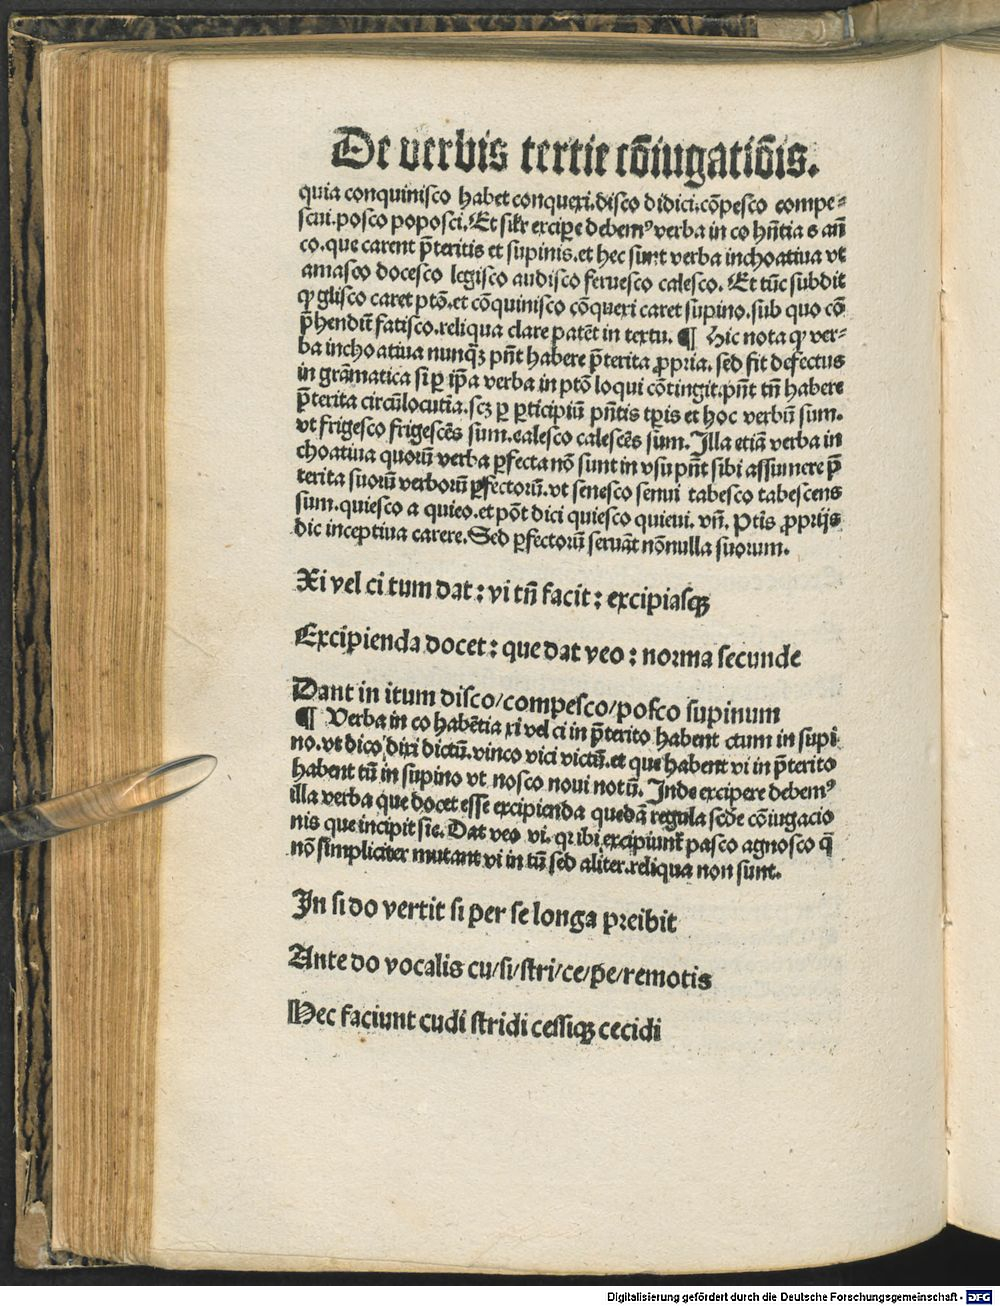 De verbis tertie cōiugatiōis.
quia conquinisco habet conquexi.disco didici.cōpesco compe⸗
scui.posco poposci.Et silr excipe debemꝰ verba in co hn̄tia s an̄
co.que carent p̄teritis et supinis.et hec sunt verba inchoatiua vt
amasco docesco legisco audisco feruesco calesco. Et tūc subdit
ꝙ glisco caret ptō.et cōquinisco cōquexi caret supino.sub quo cō
p̄hendit̄ fatisco.reliqua clare patēt in textu. ¶ Hic nota ꝙ ver⸗
ba inchoatiua nunqꝫ pn̄t habere p̄terita ꝓpria. sed fit defectus
in grāmatica si ꝑ ip̄a verba in ptō loqui cōtingit.pn̄t tn̄ habere
p̄terita circūlocutia.scꝫ ꝑ ꝑticipiū pn̄tis tꝑis et hoc verbū sum.
vt frigesco frigescēs sum.calesco calescēs sum. Illa etiā verba in
choatiua quorū verba ꝑfecta nō sunt in vsu pn̄t sibi assumere p̄
terita suorū verborū ꝑfectorū.vt senesco senui tabesco tabescens
sum.quiesco a quieo.et pōt dici quiesco quieui. vn̄. Ptis ꝓprijs
dic inceptiua carere.Sed ꝑfectorū seruāt nōnulla suorum.
Xi vel ci tum dat: vi tn̄ facit: excipiasqꝫ
Excipienda docet: que dat veo: norma secunde
Dant in itum disco/compesco/posco supinum
¶ Verba in co habētia xi vel ci in p̄terito habent ctum in supi
no.vt dico dixi dictū.vinco vici victū.et que habent vi in p̄terito
habent tū in supino vt nosco noui notū. Inde excipere debemꝰ
illa verba que docet esse excipienda quedā regula scde cōiugacio
nis que incipit sic. Dat veo vi. qꝛ ibi excipiunt̄ pasco agnosco q̄
nō simpliciter mutant vi in tū sed aliter.reliqua non sunt.
In si do vertit si per se longa preibit
Ante do vocalis cu/si/stri/ce/pe/remotis
Hec faciunt cudi stridi cessiqꝫ cecidi
Digitalisierung gefördert durch die Deutsche Forschungsgemeinschaft - DFG